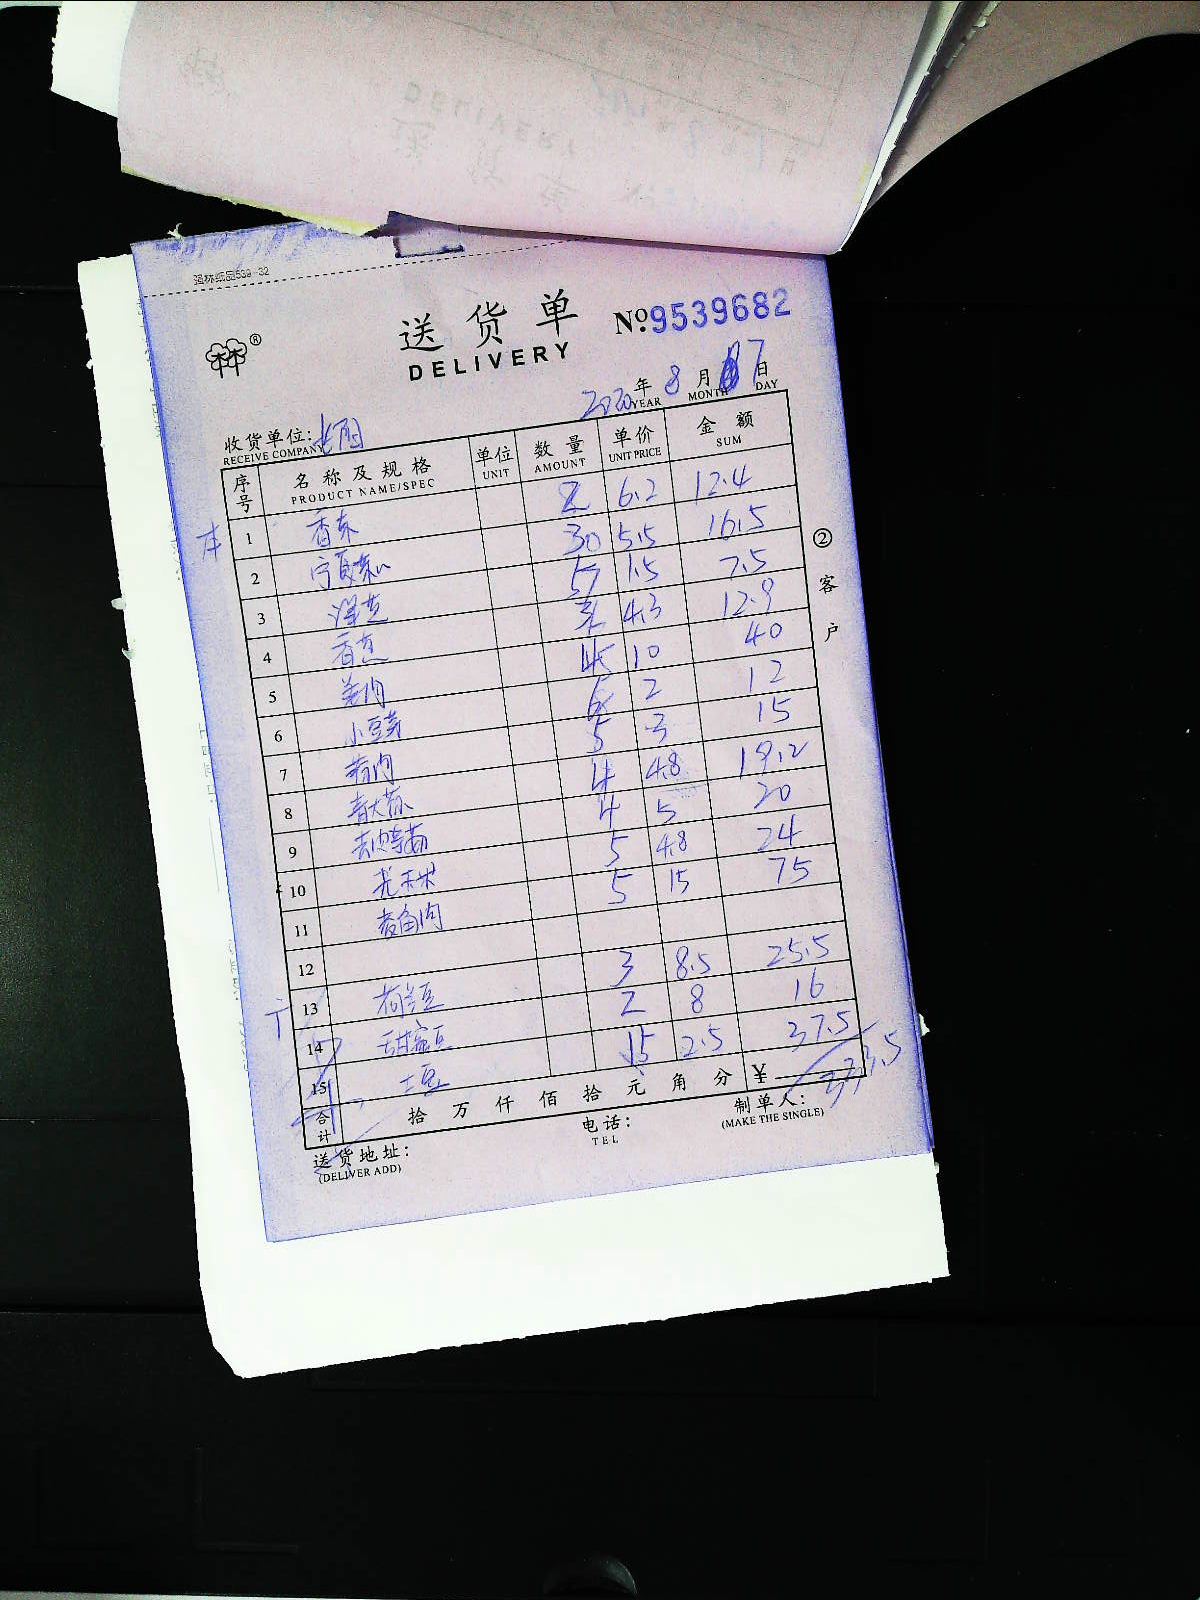 强林纸品539-32
送货单
DELIVERY
No 9539682
2020年 8月 17日
YEAR MONTH DAY
收货单位:
RECEIVE COMPANY
序号 名称及规格 单位 数量 单价 金额
PRODUCT NAME/SPEC UNIT AMOUNT UNIT PRICE SUM
1 香 2 6.2 12.4
2 宁夏 30 5.5 16.5
3 洋芝 5 1.5 7.5
4 香芝 4.3 12.9
5 羊肉 4 10 40
6 小豆芽 6 2 12
7 精肉 5 3 15
8 4 4.8 19.2
9 去皮 4 5 20
10 5 4.8 24
11 肉 5 15 75
12
13 荷兰豆 3 8.5 25.5
14 甜蜜豆 2 8 16
15 土豆 15 2.5 37.5
合计 拾万仟佰拾元角分 ¥ 333.5
送货地址: 电话: 制单人:
(DELIVER ADD) TEL (MAKE THE SINGLE)
②客户